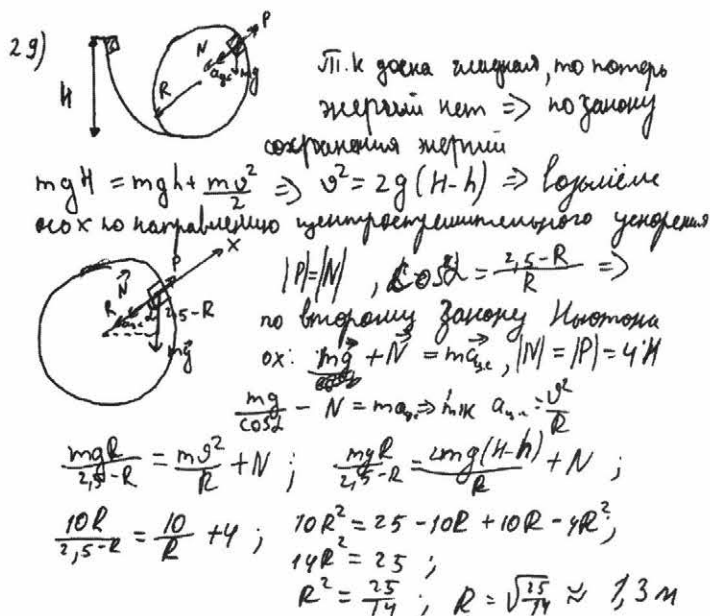 29)
H
R
N
aц.с
mg
P
Т.к доска гладкая, то потерь
энергий нет => по закону
сохранения энергий
mgH = mgh + mv²/2 => v² = 2g(H-h) => возьмём
ось x по направлению центростремительного ускорения
X
P
N
R
aц.с
2,5-R
mg
|P|=|N| , cosα = (2,5-R)/R =>
по второму Закону Ньютона
ox: mg + N = maц.с, |N|=|P|=4 Н
mg/cosα - N = maц.с => т.к aц.с = v²/R
mgR/(2,5-R) = mv²/R + N ; mgR/(2,5-R) = 2mg(H-h)/R + N ;
10R/(2,5-R) = 10/R + 4 ; 10R² = 25 - 10R + 10R - 4R² ;
14R² = 25 ;
R² = 25/14 ; R = √(25/14) ≈ 1,3 м